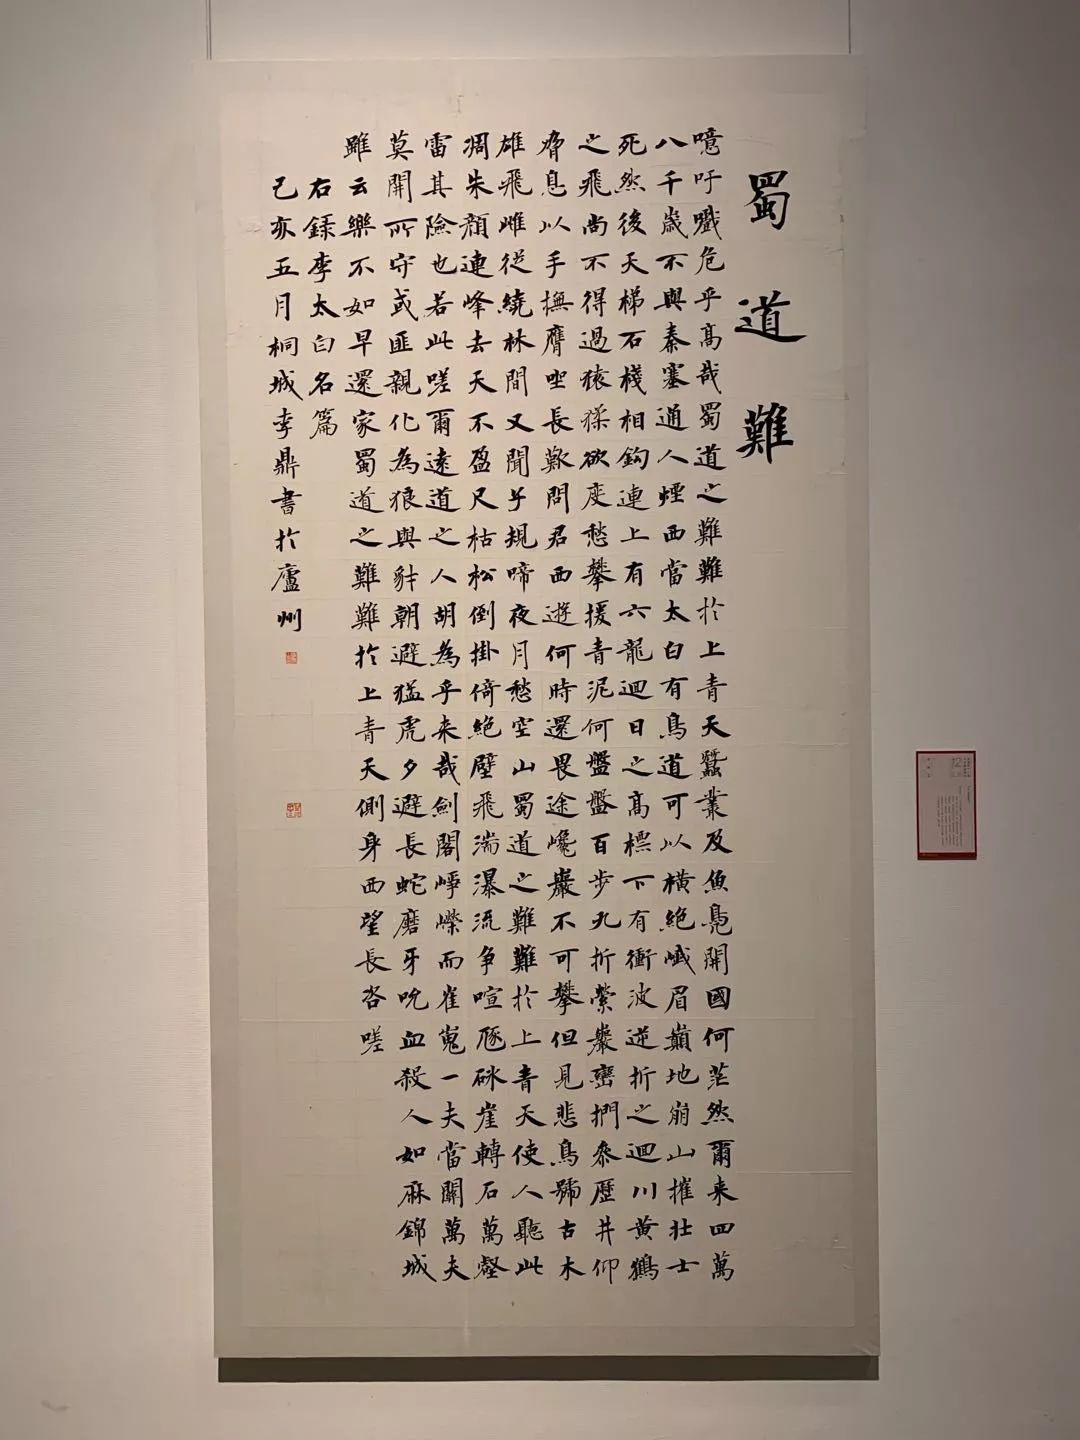 蜀道難
噫吁嚱危乎高哉蜀道之難難於上青天蠶叢及魚鳧開國何茫然爾来四萬
八千歲不與秦塞通人煙西當太白有鳥道可以橫絕峨眉巔地崩山摧壯士
死然後天梯石棧相鈎連上有六龍迴日之高標下有衝波逆折之迴川黄鶴
之飛尚不得過猿猱欲度愁攀援青泥何盤盤百步九折縈巖巒捫叅歷井仰
脅息以手撫膺坐長歎問君西遊何時還畏途巉巖不可攀但見悲鳥號古木
雄飛雌從繞林間又聞子規啼夜月愁空山蜀道之難難於上青天使人聽此
凋朱顏連峰去天不盈尺枯松倒掛倚絕壁飛湍瀑流争喧豗砯崖轉石萬壑
雷其險也若此嗟爾遠道之人胡為乎来哉劍閣崢嶸而崔嵬一夫當關萬夫
莫開所守或匪親化為狼與豺朝避猛虎夕避長蛇磨牙吮血殺人如麻錦城
雖云樂不如早還家蜀道之難難於上青天側身西望長咨嗟
右録李太白名篇
己亥五月桐城李鼎書於廬州